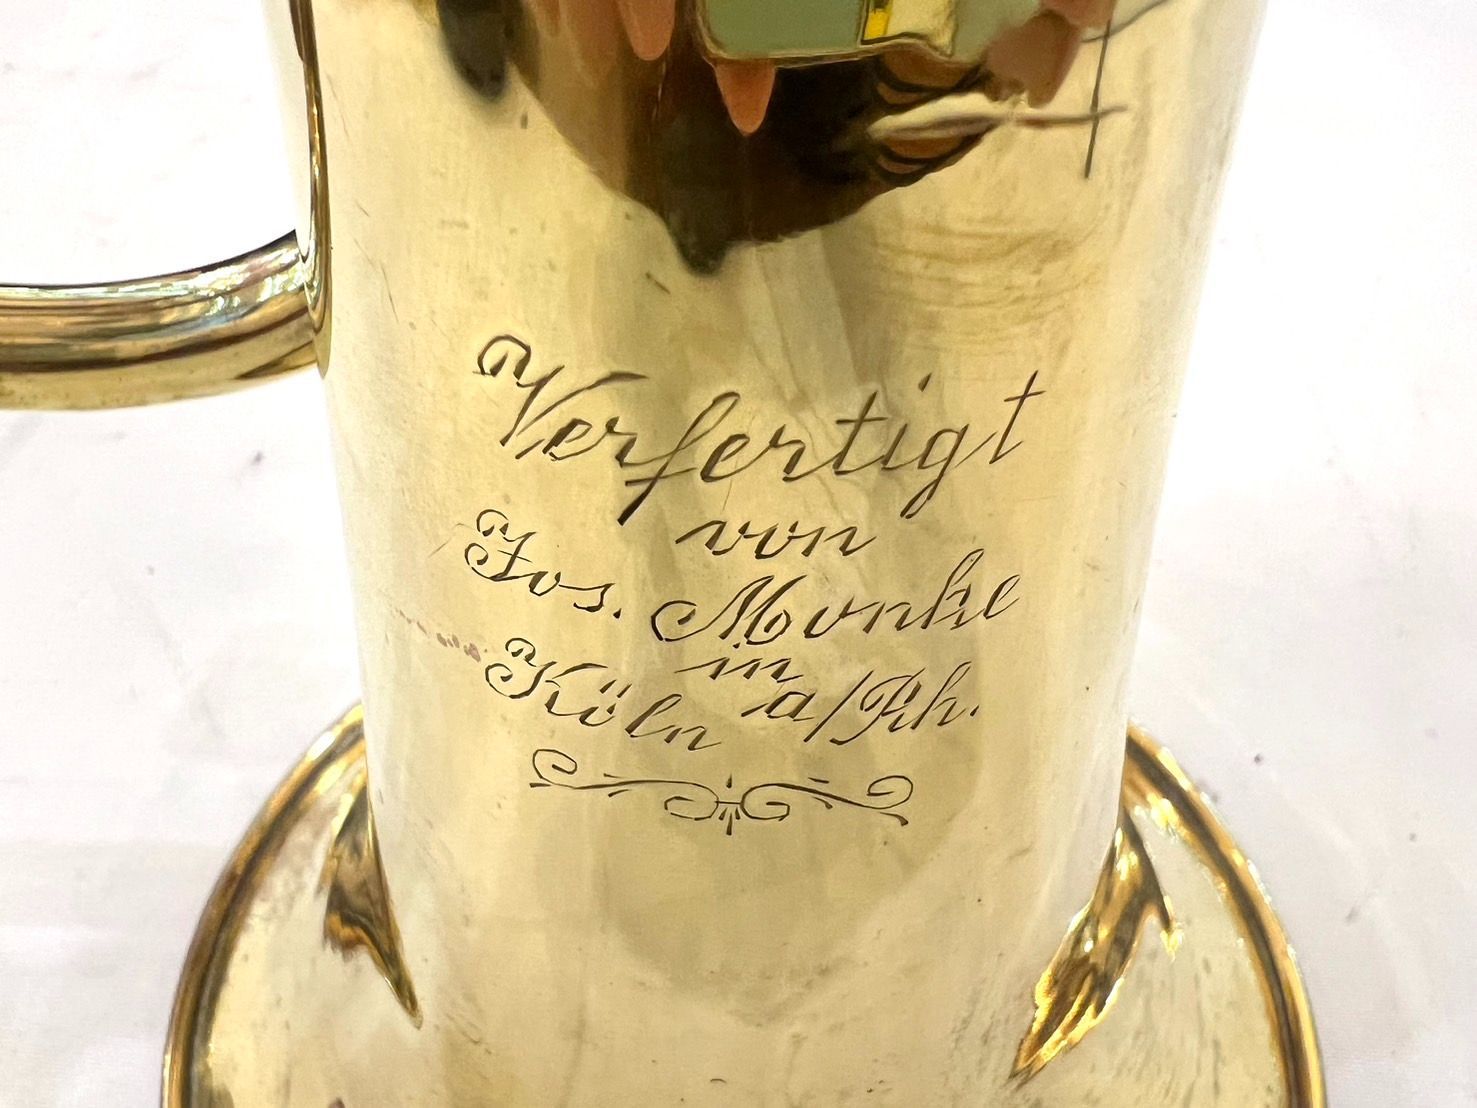 Verfertigt
von
Jos. Monke
in
Köln a/Rh.